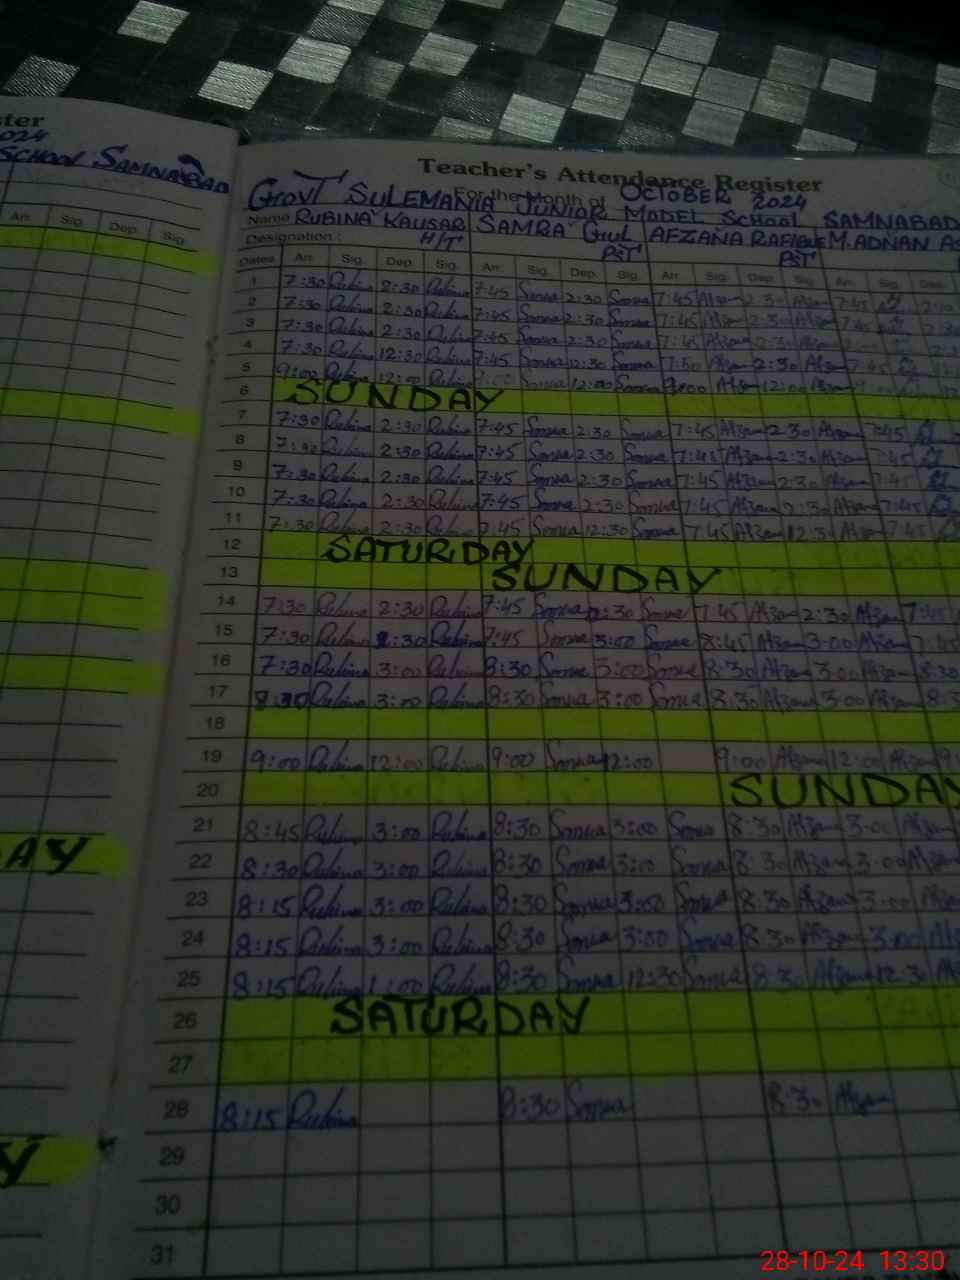 ster
2024
SCHOOL SAMNABAD
Arr. Sig. Dep. Sig.
AY
Y
Teacher's Attendance Register
For the Month of OCTOBER 2024
GOVT SULEMANIA JUNIOR MODEL SCHOOL SAMNABAD
Name RUBINA KAUSAR SAMRA Gul AFZANA RAFIQUE M.ADNAN
Designation: H/T PST PST
Dates Arr. Sig. Dep. Sig. Arr. Sig. Dep. Sig. Arr. Sig. Dep. Sig. Arr. Sig. Dep.
1 7:30 Rubina 2:30 Rubina 7:45 Samra 2:30 Samra 7:45 Afzana 2:30 Afzana 7:45
2 7:30 Rubina 2:30 Rubina 7:45 Samra 2:30 Samra 7:45 Afzana 2:30 Afzana 7:45
3 7:30 Rubina 2:30 Rubina 7:45 Samra 2:30 Samra 7:45 Afzana 2:30 Afzana
4 7:30 Rubina 12:30 Rubina 7:45 Samra 12:30 Samra 7:50 Afzana 2:30 Afzana 7:45
5 9:00 Rubina 12:00 Rubina Samra 12:00 Samra 9:00 Afzana 12:00 Afzana
6 SUNDAY
7 7:30 Rubina 2:30 Rubina 7:45 Samra 2:30 Samra 7:45 Afzana 2:30 Afzana 7:45
8 7:30 Rubina 2:30 Rubina 7:45 Samra 2:30 Samra 7:45 Afzana 2:30 Afzana 7:45
9 7:30 Rubina 2:30 Rubina 7:45 Samra 2:30 Samra 7:45 Afzana 2:30 Afzana 7:45
10 7:30 Rubina 2:30 Rubina 7:45 Samra 2:30 Samra 7:45 Afzana 2:30 Afzana 7:45
11 7:30 Rubina 2:30 Rubina 7:45 Samra 12:30 Samra 7:45 Afzana 12:30 Afzana 7:45
12 SATURDAY
13 SUNDAY
14 7:30 Rubina 2:30 Rubina 7:45 Samra 2:30 Samra 7:45 Afzana 2:30 Afzana 7:45
15 7:30 Rubina :30 Rubina 7:45 Samra 3:00 Samra 8:45 Afzana 3:00 Afzana 7:45
16 7:30 Rubina 3:00 Rubina 8:30 Samra 3:00 Samra 8:30 Afzana 3:00 Afzana 8:30
17 8:30 Rubina 3:00 Rubina 8:30 Samra 3:00 Samra 8:30 Afzana 3:00 Afzana 8:3
18
19 9:00 Rubina 12:00 Rubina 9:00 Samra 12:00 9:00 Afzana 12:00 Afzana 9:
20 SUNDAY
21 8:45 Rubina 3:00 Rubina 8:30 Samra 3:00 Samra 8:30 Afzana 3:00 Afzana
22 8:30 Rubina 3:00 Rubina 8:30 Samra 3:00 Samra 8:30 Afzana 3:00 Afzana
23 8:15 Rubina 3:00 Rubina 8:30 Samra 3:00 Samra 8:30 Afzana 3:00 Afzana
24 8:15 Rubina 3:00 Rubina 8:30 Samra 3:00 Samra 8:30 Afzana 3:00
25 8:15 Rubina 1:00 Rubina 8:30 Samra 12:30 Samra 8:30 Afzana 12:30
26 SATURDAY
27
28 8:15 Rubina 8:30 Samra 8:30 Afzana
29
30
31
28-10-24 13:30